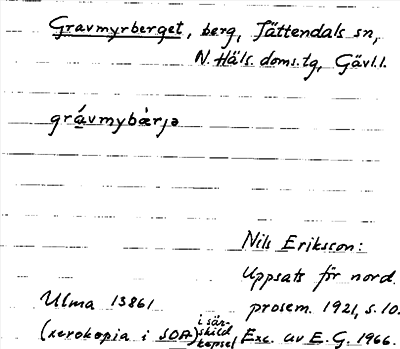 Gravmyrberget, berg, Jättendals sn,
N. Häls. doms.tg, Gävl.l.
grávmybæ̀rjə
Nils Eriksson:
Uppsats för nord.
prosem. 1921, s. 10.
Ulma 13861
(xerokopia i SOA) i särskild kapsel
Exc. av E. G. 1966.